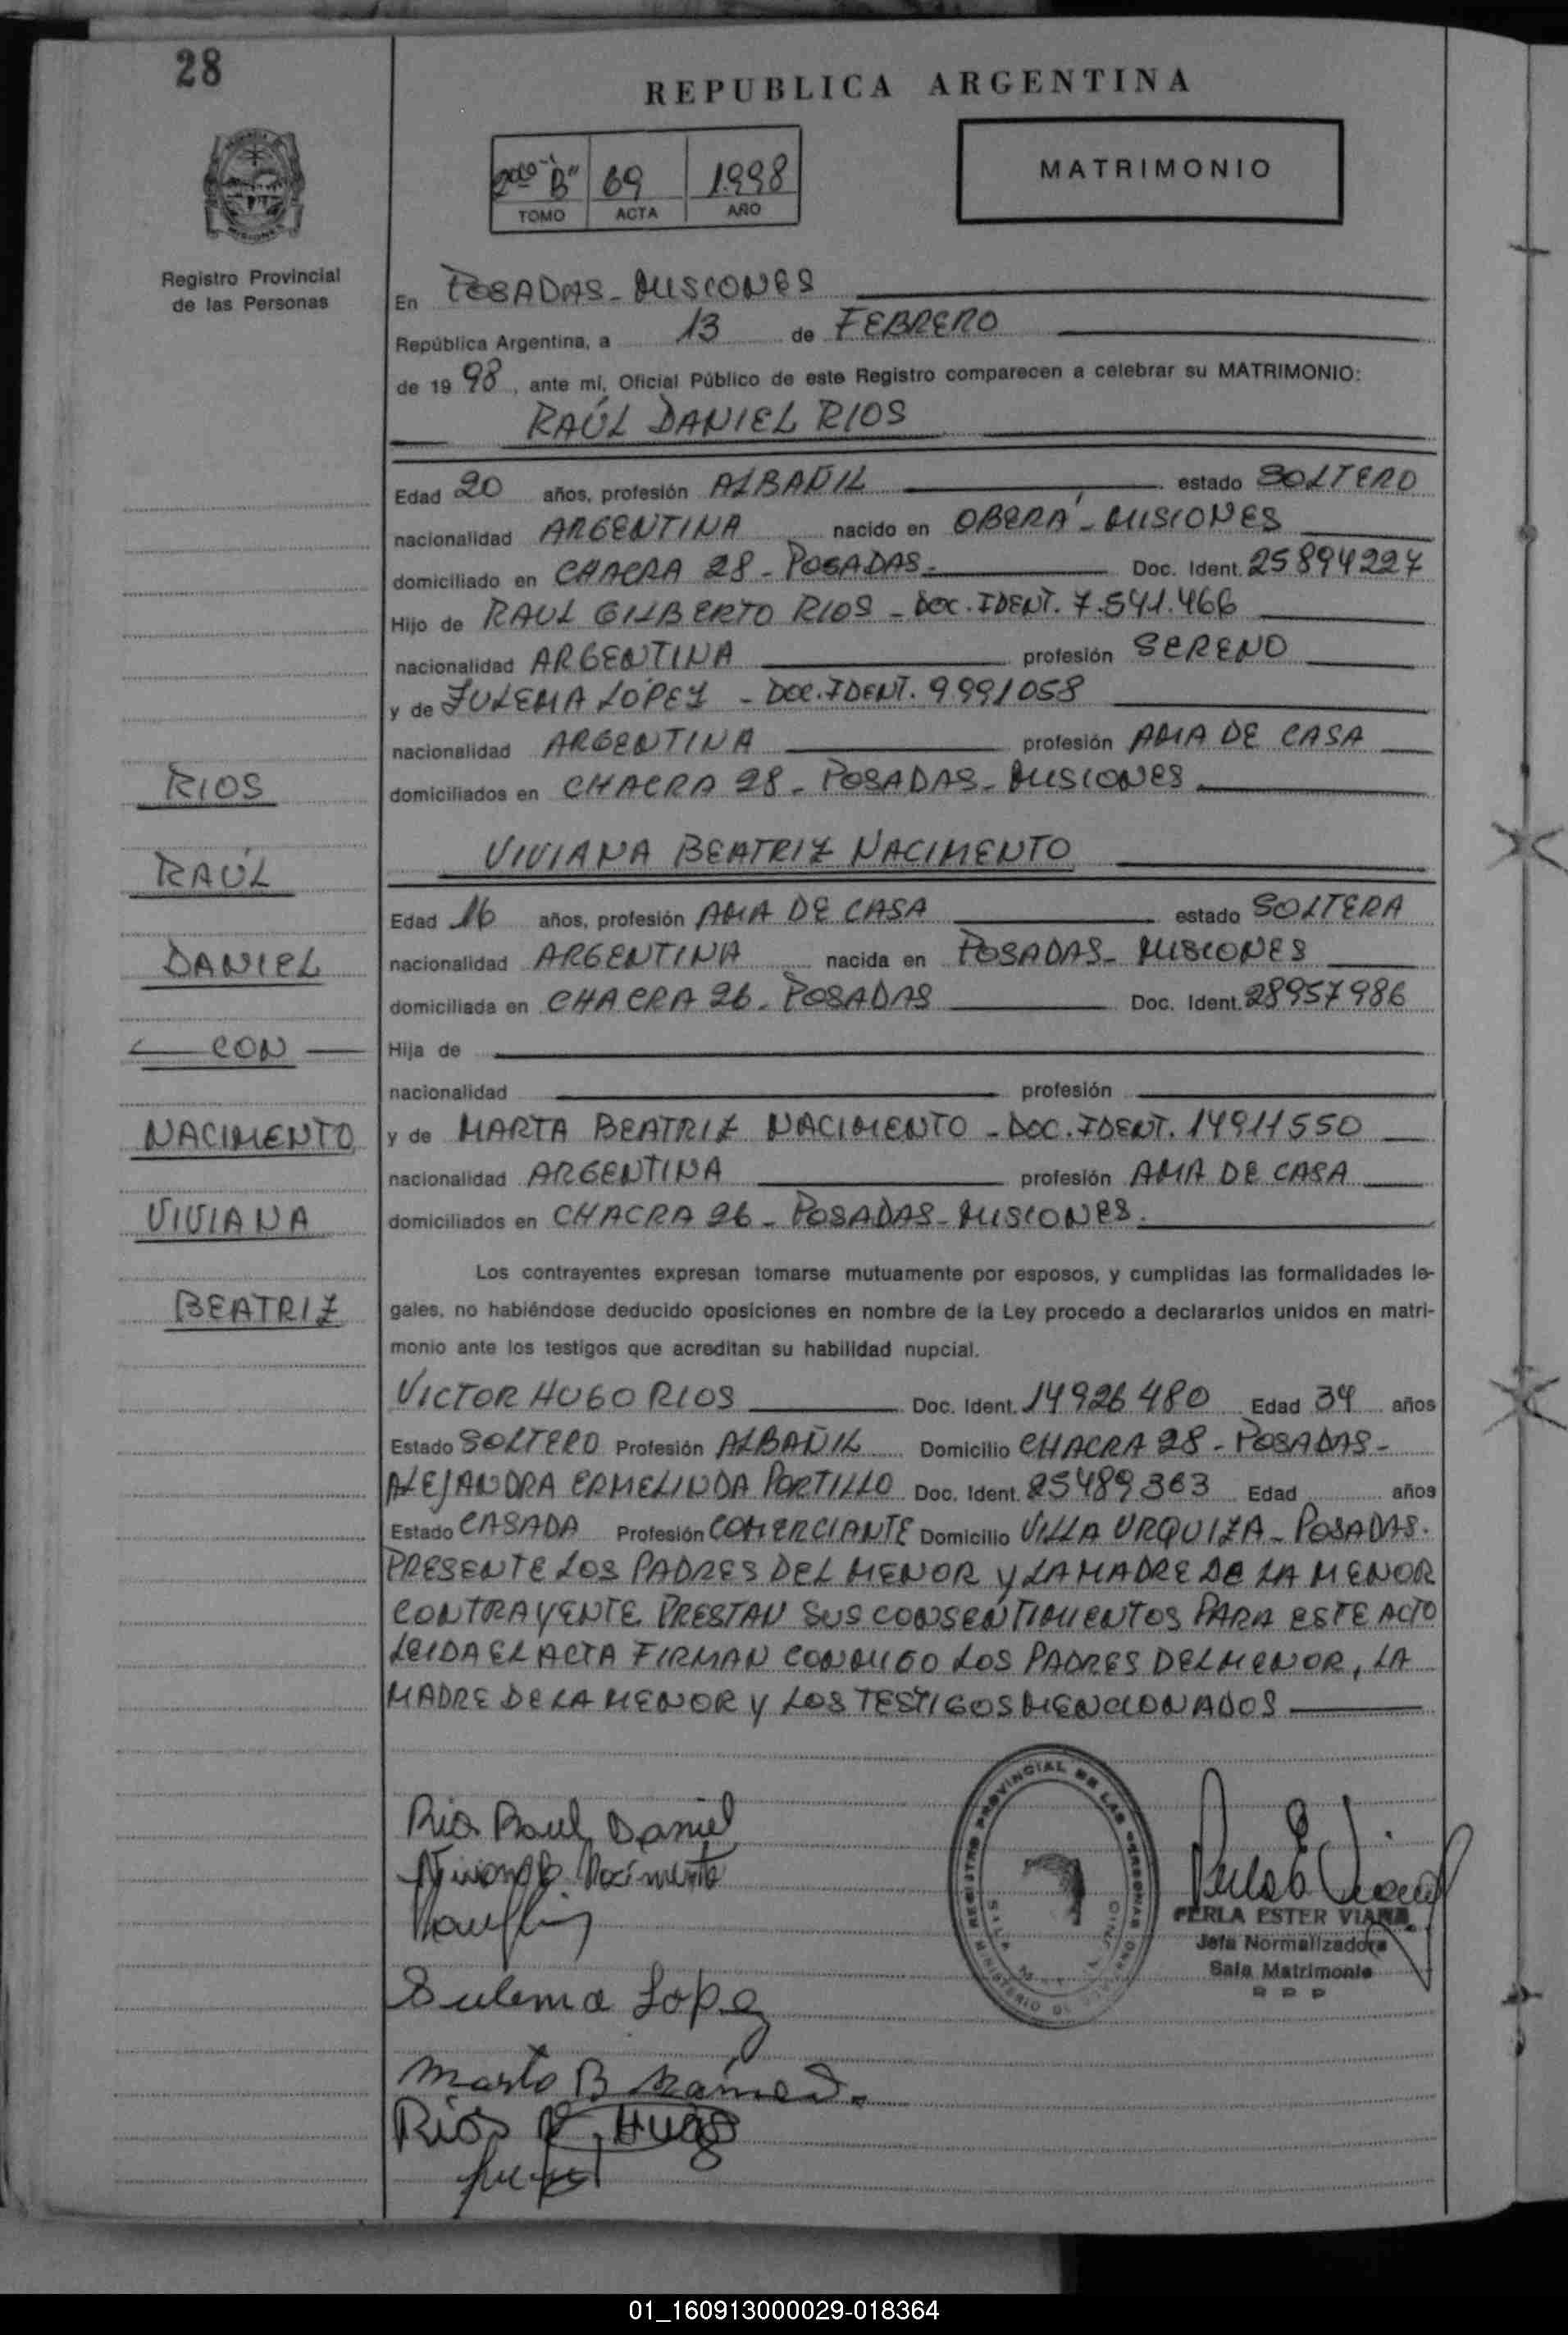 28
REPUBLICA ARGENTINA
2do "B" 69 1998
TOMO ACTA AÑO
MATRIMONIO
Registro Provincial
de las Personas
En POSADAS - MISIONES
República Argentina, a 13 de FEBRERO
de 19 98, ante mí, Oficial Público de este Registro comparecen a celebrar su MATRIMONIO:
RAÚL DANIEL RIOS
Edad 20 años, profesión ALBAÑIL estado SOLTERO
nacionalidad ARGENTINA nacido en OBERÁ - MISIONES
domiciliado en CHACRA 28 - POSADAS. Doc. Ident. 25894227
Hijo de RAUL GILBERTO RIOS - DOC. IDENT. 7.541.466
nacionalidad ARGENTINA profesión SERENO
y de ZULEMA LÓPEZ - DOC. IDENT. 9991058
nacionalidad ARGENTINA profesión AMA DE CASA
domiciliados en CHACRA 28 - POSADAS - MISIONES
VIVIANA BEATRIZ NACIMENTO
Edad 16 años, profesión AMA DE CASA estado SOLTERA
nacionalidad ARGENTINA nacida en POSADAS - MISIONES
domiciliada en CHACRA 26 - POSADAS Doc. Ident. 28957986
Hija de
nacionalidad profesión
y de MARTA BEATRIZ NACIMENTO - DOC. IDENT. 14911550
nacionalidad ARGENTINA profesión AMA DE CASA
domiciliados en CHACRA 26 - POSADAS - MISIONES.
RIOS
RAÚL
DANIEL
CON
NACIMENTO
VIVIANA
BEATRIZ
Los contrayentes expresan tomarse mutuamente por esposos, y cumplidas las formalidades le-
gales, no habiéndose deducido oposiciones en nombre de la Ley procedo a declararlos unidos en matri-
monio ante los testigos que acreditan su habilidad nupcial.
VICTOR HUGO RIOS Doc. Ident. 14926480 Edad 34 años
Estado SOLTERO Profesión ALBAÑIL Domicilio CHACRA 28 - POSADAS -
ALEJANDRA ERMELINDA PORTILLO Doc. Ident. 25489363 Edad años
Estado CASADA Profesión COMERCIANTE Domicilio VILLA URQUIZA - POSADAS.
PRESENTE LOS PADRES DEL MENOR Y LA MADRE DE LA MENOR
CONTRAYENTE PRESTAN SUS CONSENTIMIENTOS PARA ESTE ACTO
LEIDA EL ACTA FIRMAN CONMIGO LOS PADRES DEL MENOR, LA
MADRE DE LA MENOR Y LOS TESTIGOS MENCIONADOS
Rios Raul Daniel
Viviana B. Nacimento
Sulema Lopez
Marta B
Rios V. Hugo
REGISTRO PROVINCIAL DE LAS PERSONAS
MINISTERIO DE
PERLA ESTER VIANA
Jefa Normalizadora
Sala Matrimonio
R P P
01_160913000029-018364